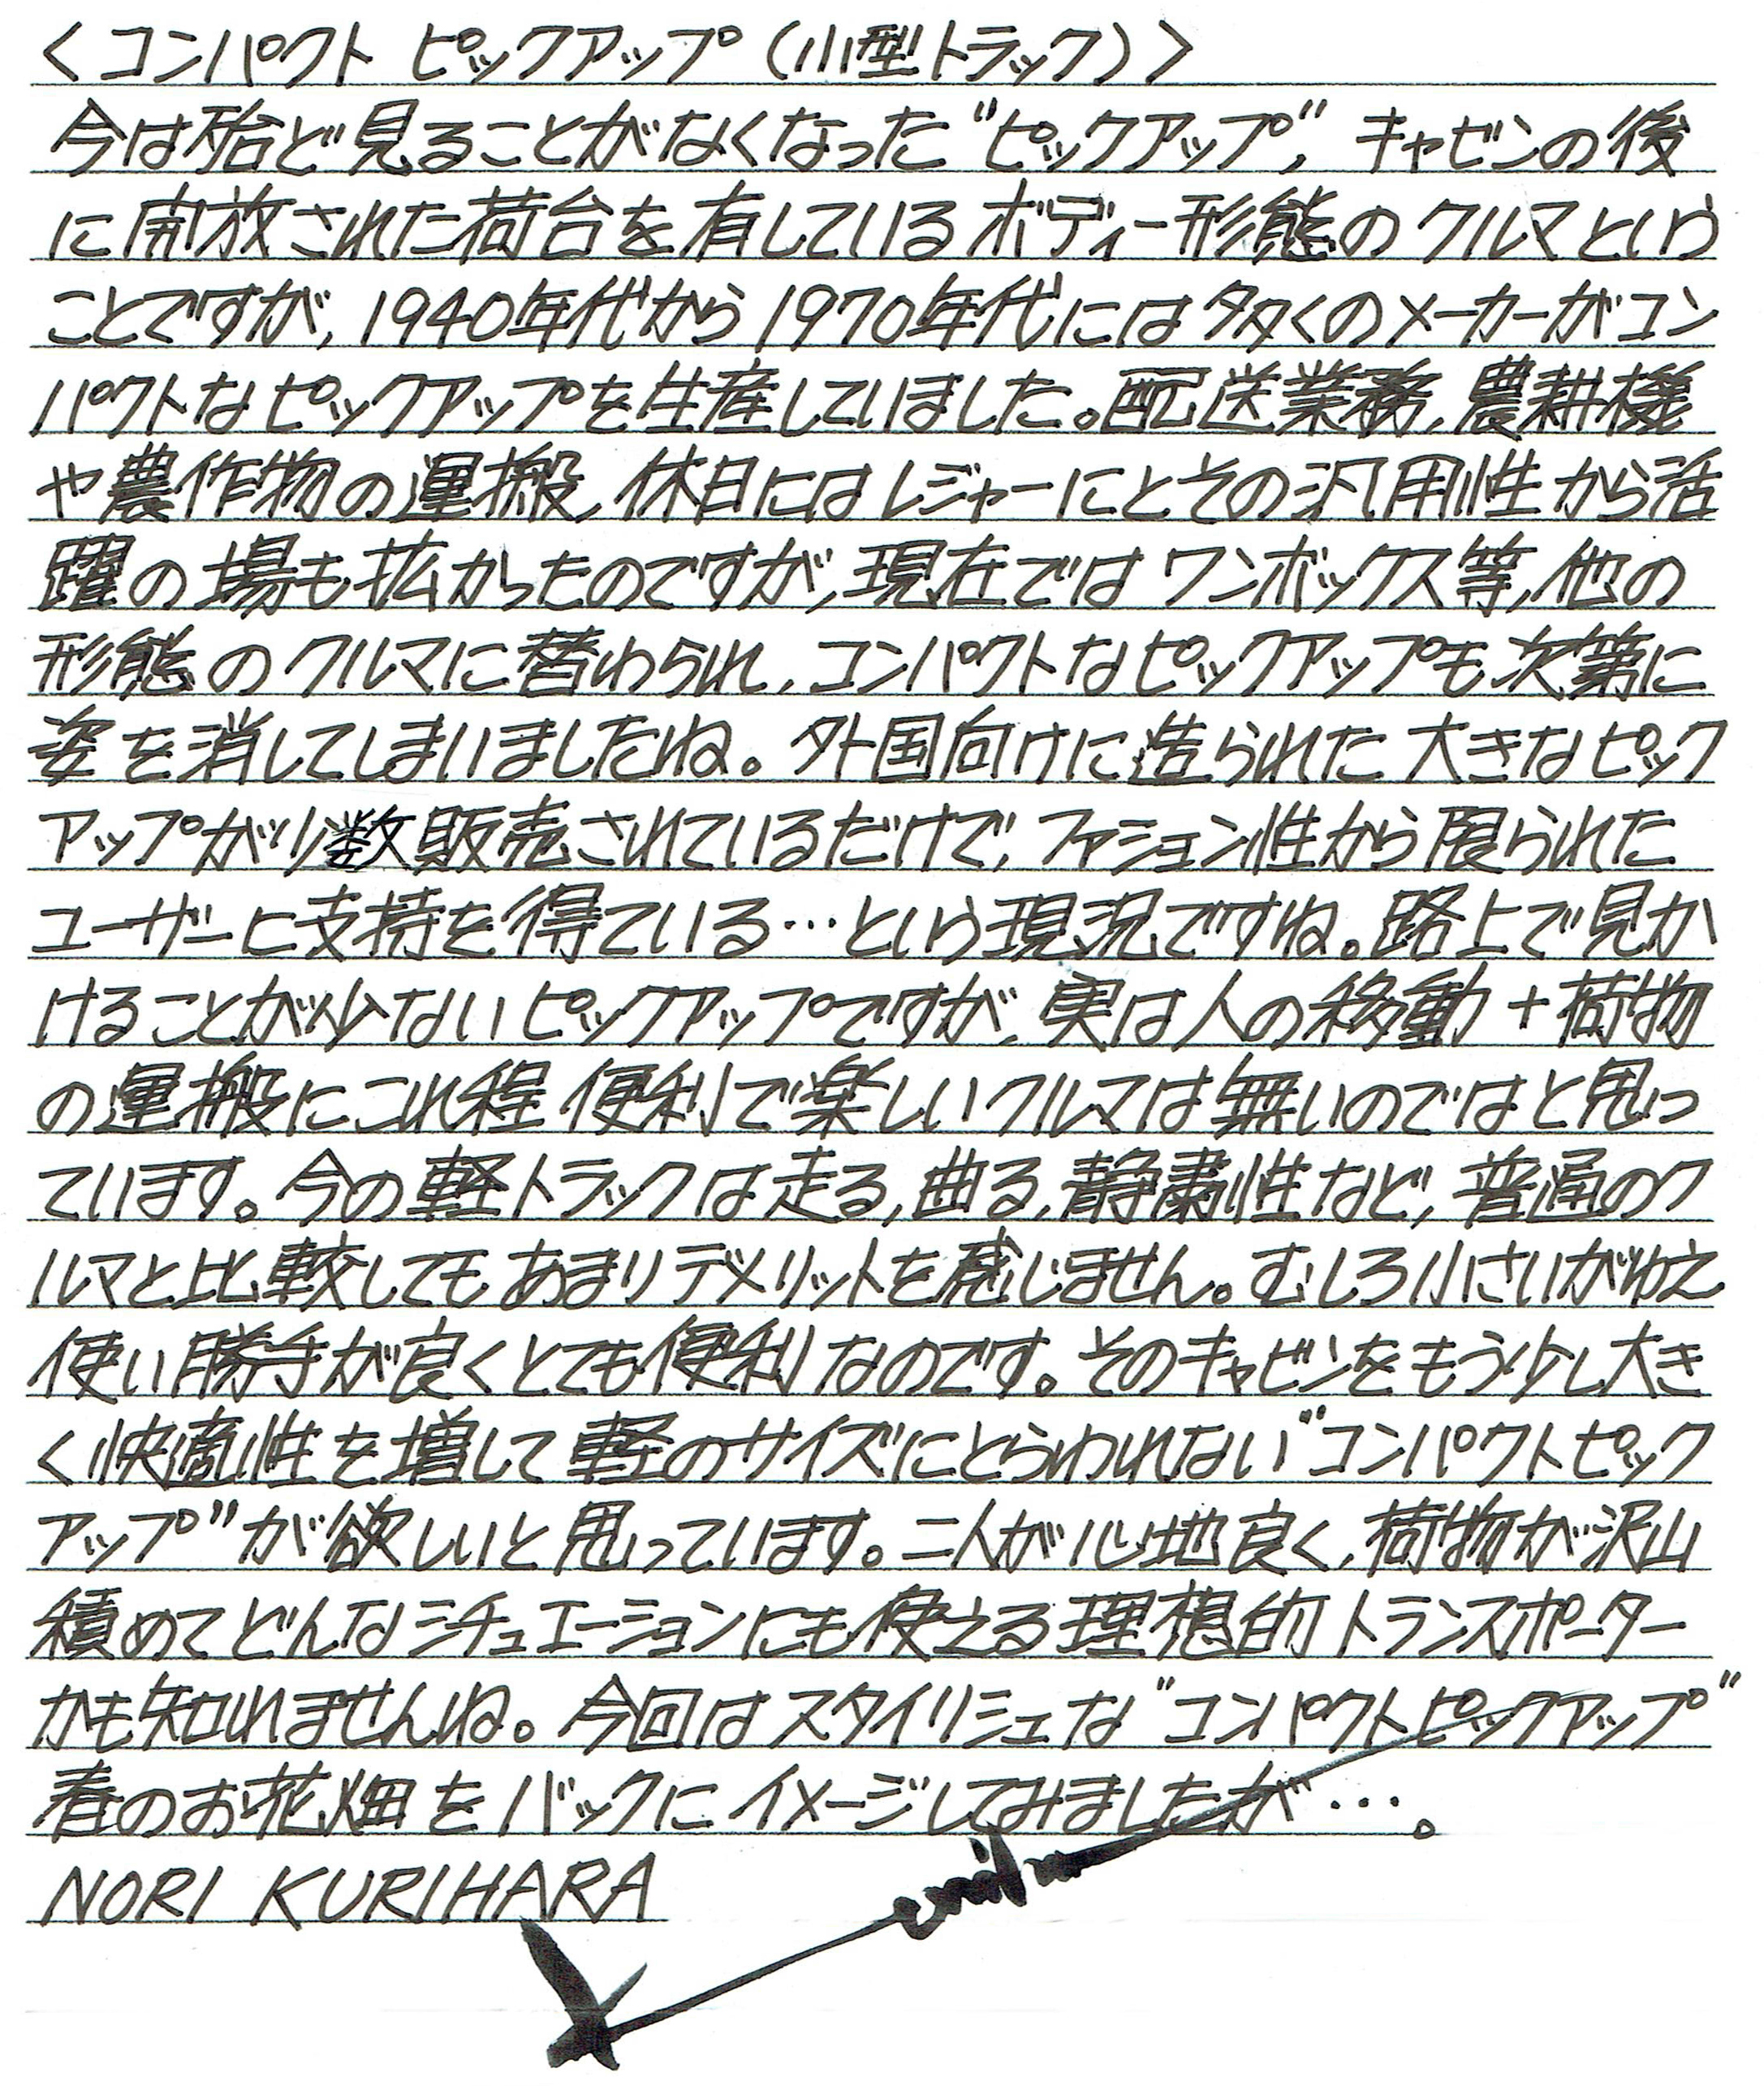 <コンパクト ピックアップ(小型トラック)>
今は殆ど見ることがなくなった"ピックアップ", キャビンの後
に開放された荷台を有しているボディー形態のクルマという
ことですが, 1940年代から1970年代には多くのメーカーがコン
パクトなピックアップを生産していました。配送業務, 農耕機
や農作物の運搬, 休日にはレジャーにとその汎用性から活
躍の場も拡かったのですが, 現在ではワンボックス等, 他の
形態のクルマに替わられ, コンパクトなピックアップも次第に
姿を消してしまいましたね。外国向けに造られた大きなピック
アップが少数販売されているだけで, ファション性から限られた
ユーザーに支持を得ている…という現況ですね。路上で見か
けることが少ないピックアップですが, 実は人の移動+荷物
の運搬にこれ程便利で楽しいクルマは無いのではと思っ
ています。今の軽トラックは走る, 曲る, 静粛性など, 普通のク
ルマと比較してもあまりデメリットを感じません。むしろ小さいがゆえ
使い勝手が良くとても便利なのです。そのキャビンをもう少し大き
く快適性を増して軽のサイズにとらわれない"コンパクトピック
アップ"が欲しいと思っています。二人が心地良く, 荷物が沢山
積めてどんなシチュエーションにも使える理想的トランスポーター
かも知れませんね。今回はスタイリシュな"コンパクトピックアップ"
春のお花畑をバックにイメージしてみましたが…。
NORI KURIHARA